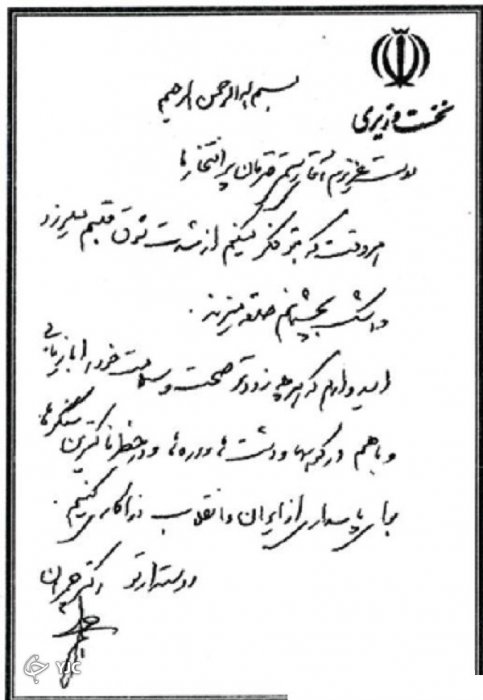 نخست وزیری
بسم الله الرحمن الرحیم
دوست عزیزم آقای رستمی قهرمان پر افتخار ما
هر وقت که بتو فکر میکنم از شدت شوق قلبم میلرزد
و اشک بچشمانم حلقه میزند.
امیدوارم که هر چه زودتر صحت و سلامت خود را بازیابی
و باهم در کوهها و دشت ها و دره ها و در خطرناکترین سنگرها
بپاسداری از ایران و انقلاب فداکاری کنیم.
دوستدار تو دکتر چمران
YJC